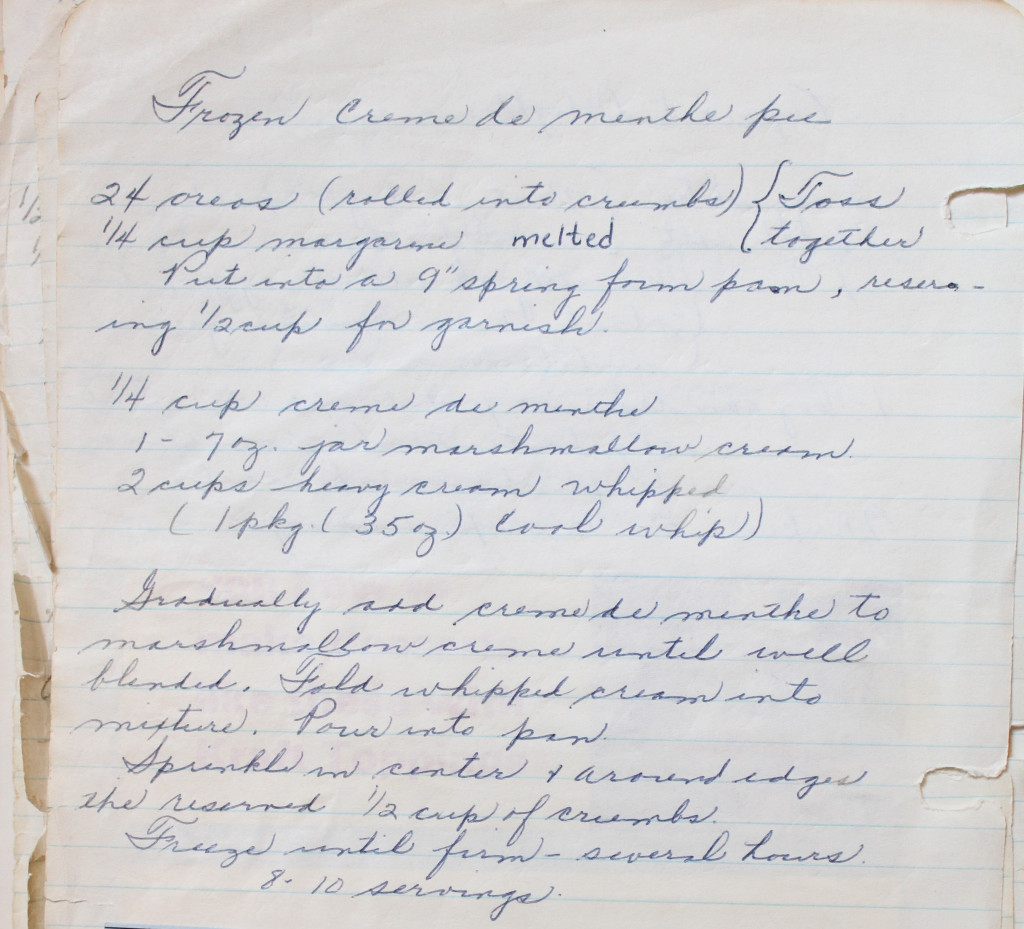 Frozen Creme de menthe pie
24 oreos (rolled into crumbs) { Toss
1/4 cup margarine melted { together
Put into a 9" spring form pan, reserv-
ing 1/2 cup for garnish.
1/4 cup creme de menthe
1 - 7 oz. jar marshmallow cream.
2 cups heavy cream whipped
( 1 pkg. ( 35 oz.) Cool whip))
Gradually add creme de menthe to
marshmallow creme until well
blended. Fold whipped cream into
mixture. Pour into pan.
Sprinkle in center & around edges
the reserved 1/2 cup of crumbs.
Freeze until firm - several hours.
8 - 10 servings.
1/2